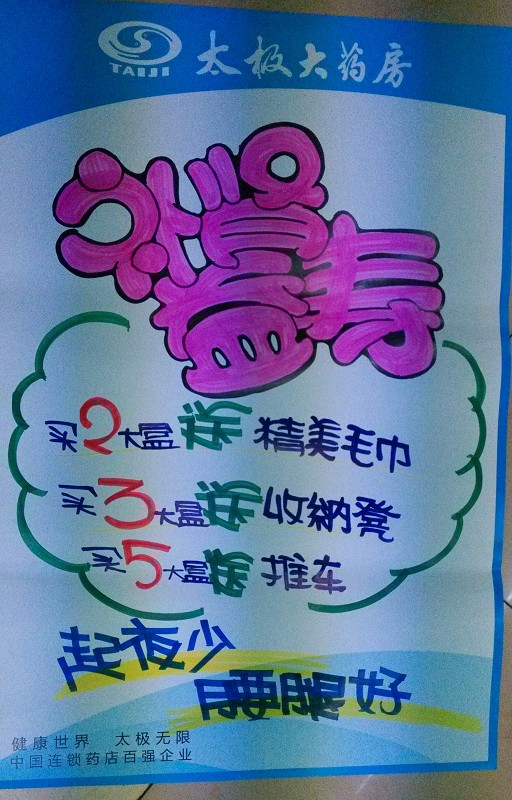 TAIJI 太极大药房
补肾
益寿
买2大盒送精美毛巾
买3大盒送收纳凳
买5大盒送推车
起夜少
腰腿好
健康世界 太极无限
中国连锁药店百强企业